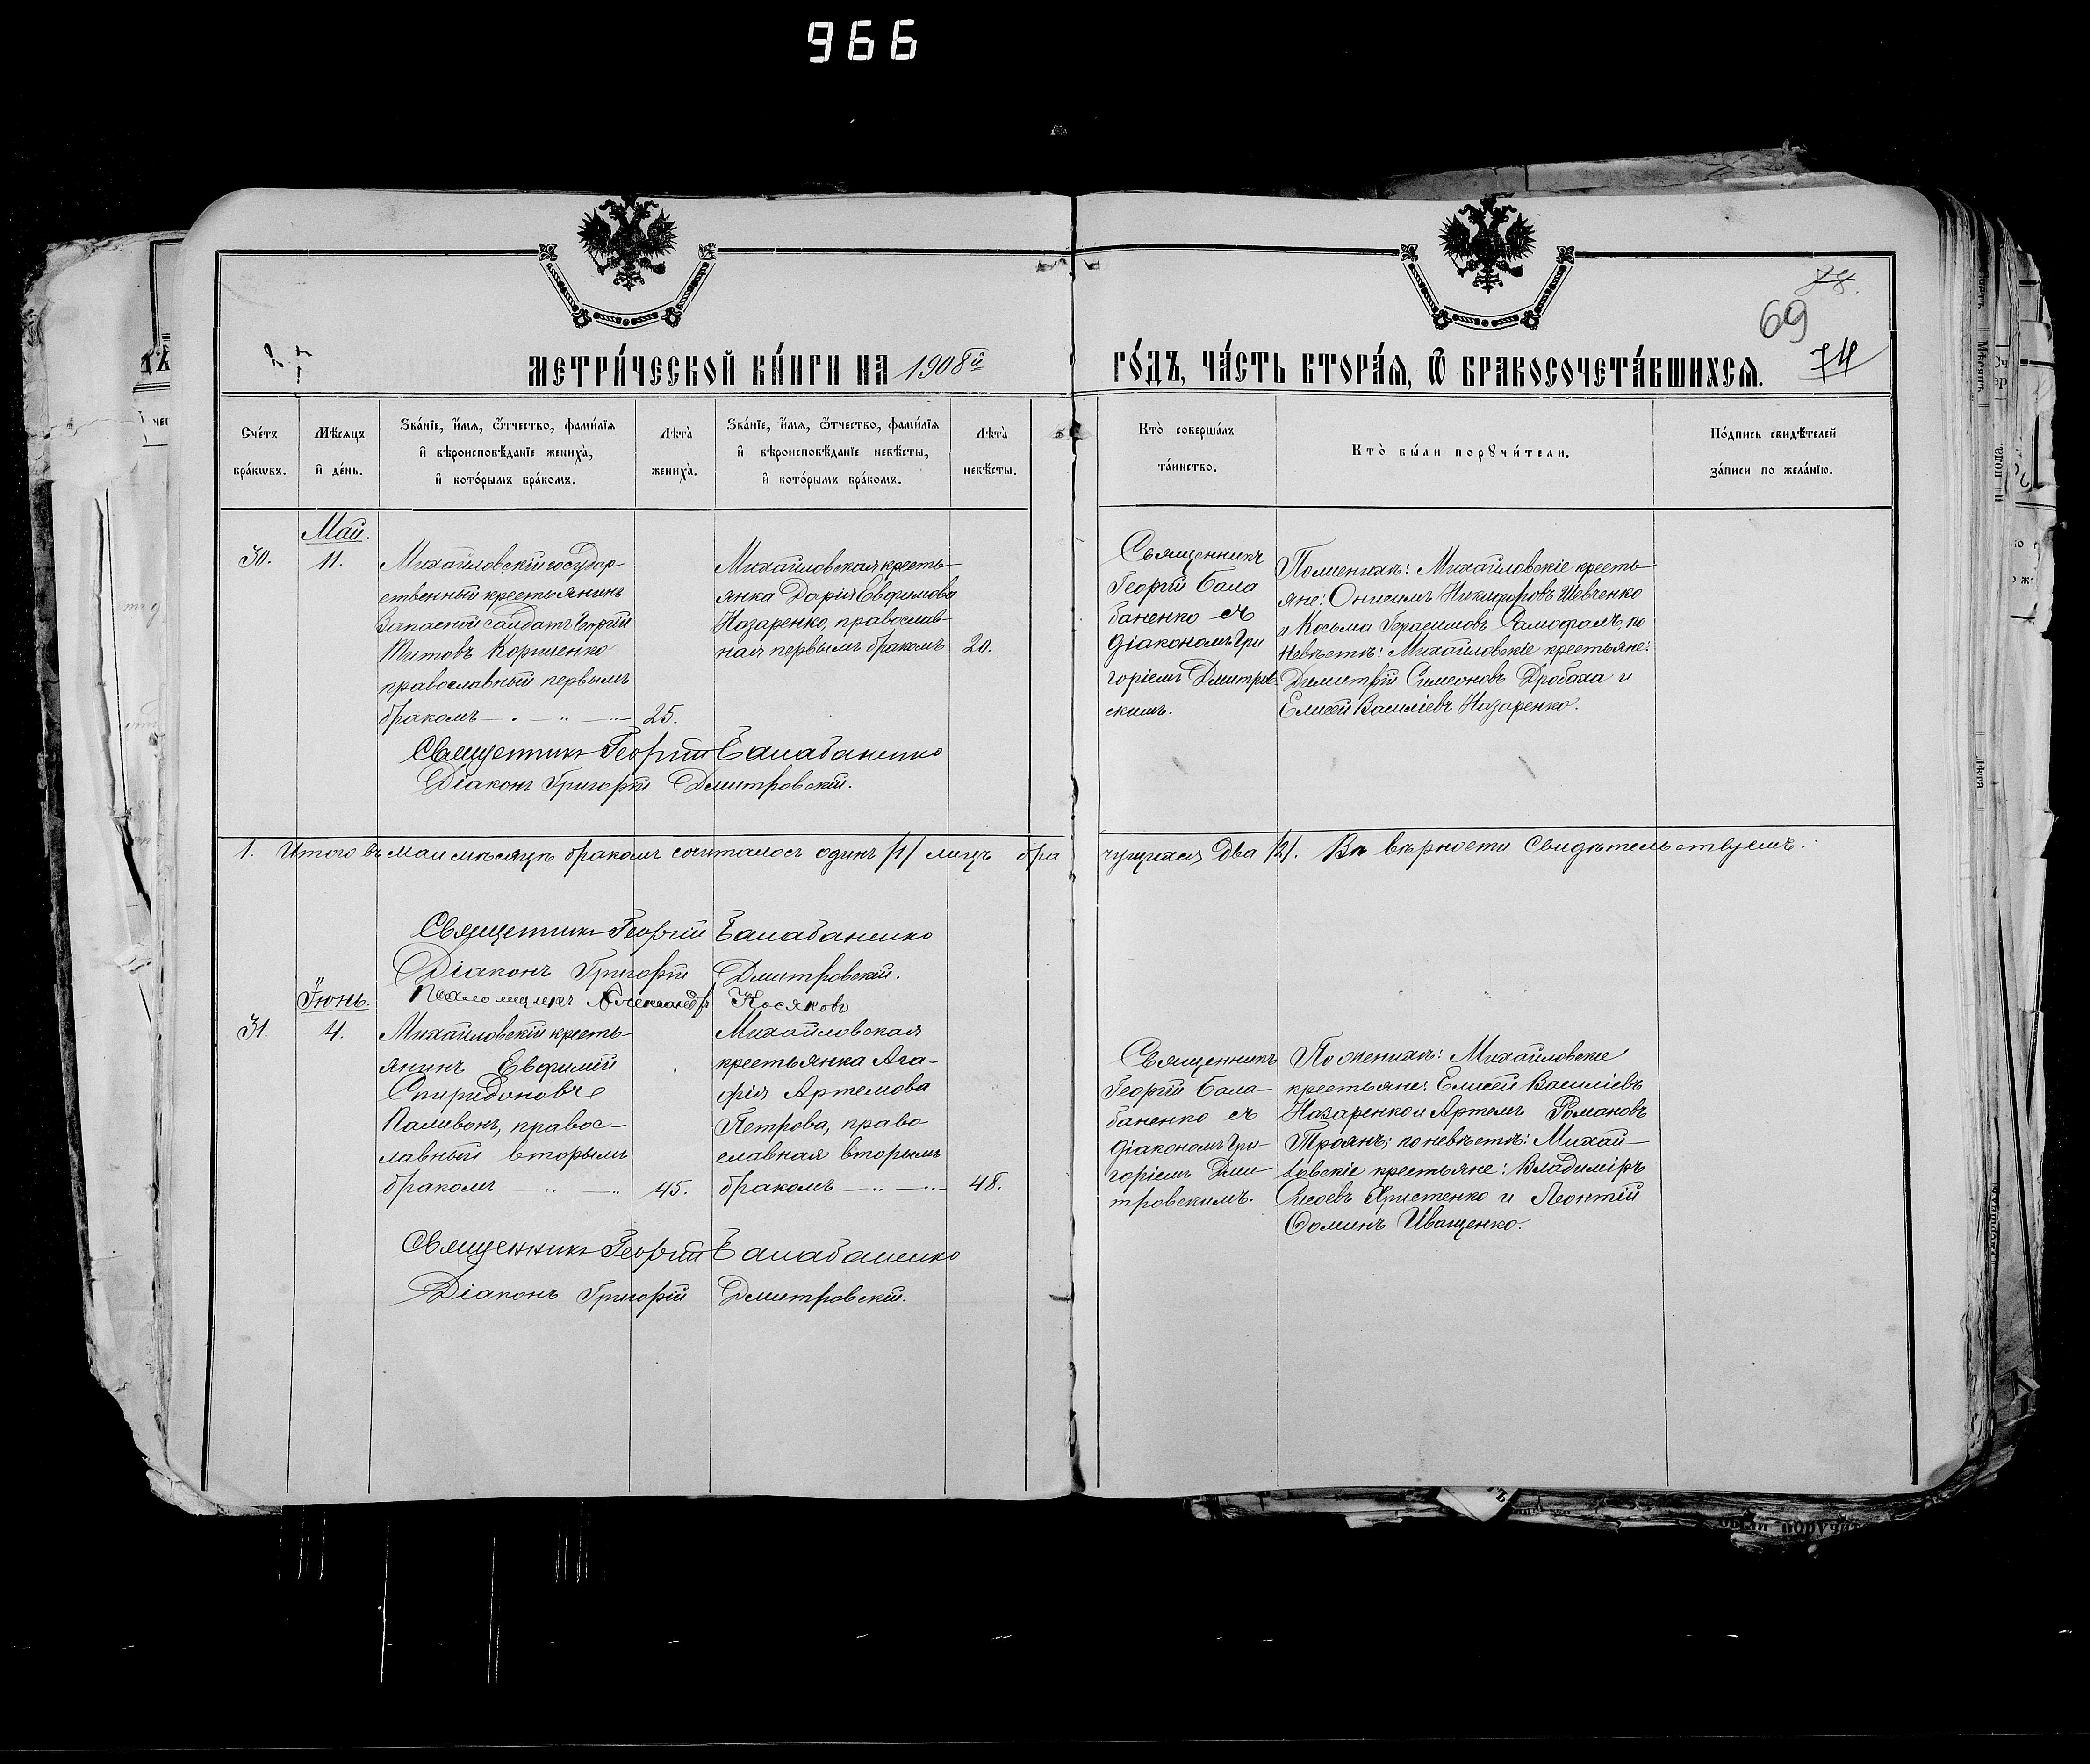 966
78.
69
74
МЕТРИ́ЧЕСКОЙ КНИ́ГИ НА 1908й
ГО́ДЪ, ЧА́СТЬ ВТОРА́Я, Ѿ БРАКОСОЧЕТА́ВШИХСЯ.
Сче́тъ
бра́кѡвъ.
Мѣ́сяцъ
и҆ де́нь.
Ѕва́нїе, и҆́мя, ѻ҆́тчество, фами́лїя
и҆ вѣроисповѣ́данїе жениха̀,
и҆ кото́рымъ бра́комъ.
Лѣ̀та
жениха̀.
Ѕва́нїе, и҆́мя, ѻ҆́тчество, фами́лїя
и҆ вѣроисповѣ́данїе невѣ́сты,
и҆ кото́рымъ бра́комъ.
Лѣ̀та
невѣ́сты.
Кто̀ соверша́лъ
та́инство.
Кто̀ бы́ли порꙋчи́тели.
По́дпись свидѣ́телей
за́писи по жела́нїю.
Май.
30.
11.
Михайловскій государ-
ственный крестьянинъ
Запасной Солдатъ Георгій
Титовъ Корниенко
православный первымъ
бракомъ
25.
Михайловская кресть-
янка Дарія Евфимова
Назаренко, православ-
ная первымъ бракомъ
20.
Священникъ
Георгій Бала
баненко съ
діакономъ Гри
горіемъ Дмитров-
скимъ.
По женихѣ: Михайловскіе кресть-
яне: Онисимъ Никифоровъ Шевченко
и Косьма Герасимовъ Самофалъ, по
невѣстѣ: Михайловскіе крестьяне:
Димитрій Симеоновъ Дробаха и
Елисей Василіевъ Назаренко.
Священникъ Георгій Балабаненко
Діаконъ Григорій Дмитровскій.
1. Итого въ маи мѣсяцѣ бракомъ сочиталось одинъ /1/ лицъ бра
чущихся Два /2/. Въ вѣрности Свидѣтельствуемъ.
Священникъ Георгій Балабаненко
Діаконъ Григорій Дмитровскій.
Псаломщикъ Александръ Косяковъ
Іюнь.
31.
4.
Михайловскій кресть-
янинъ Евфимій
Спиридоновъ
Паливонъ, правос-
лавный вторымъ
бракомъ
45.
Михайловская
крестьянка Ага-
фія Артемова
Петрова, право
славная вторымъ
бракомъ
48.
Священникъ
Георгій Бала-
баненко съ
діакономъ Гри-
горіемъ Дми-
тровскимъ.
По женихѣ: Михайловскіе
крестьяне: Елисей Василіевъ
Назаренко и Артемъ Романовъ
Троянъ; по невѣстѣ: Михай-
ловскіе крестьяне: Владиміръ
Христенко и Леонтій
Фоминъ Иващенко.
Священникъ Георгій Балабаненко
Діаконъ Григорій Дмитровскій.